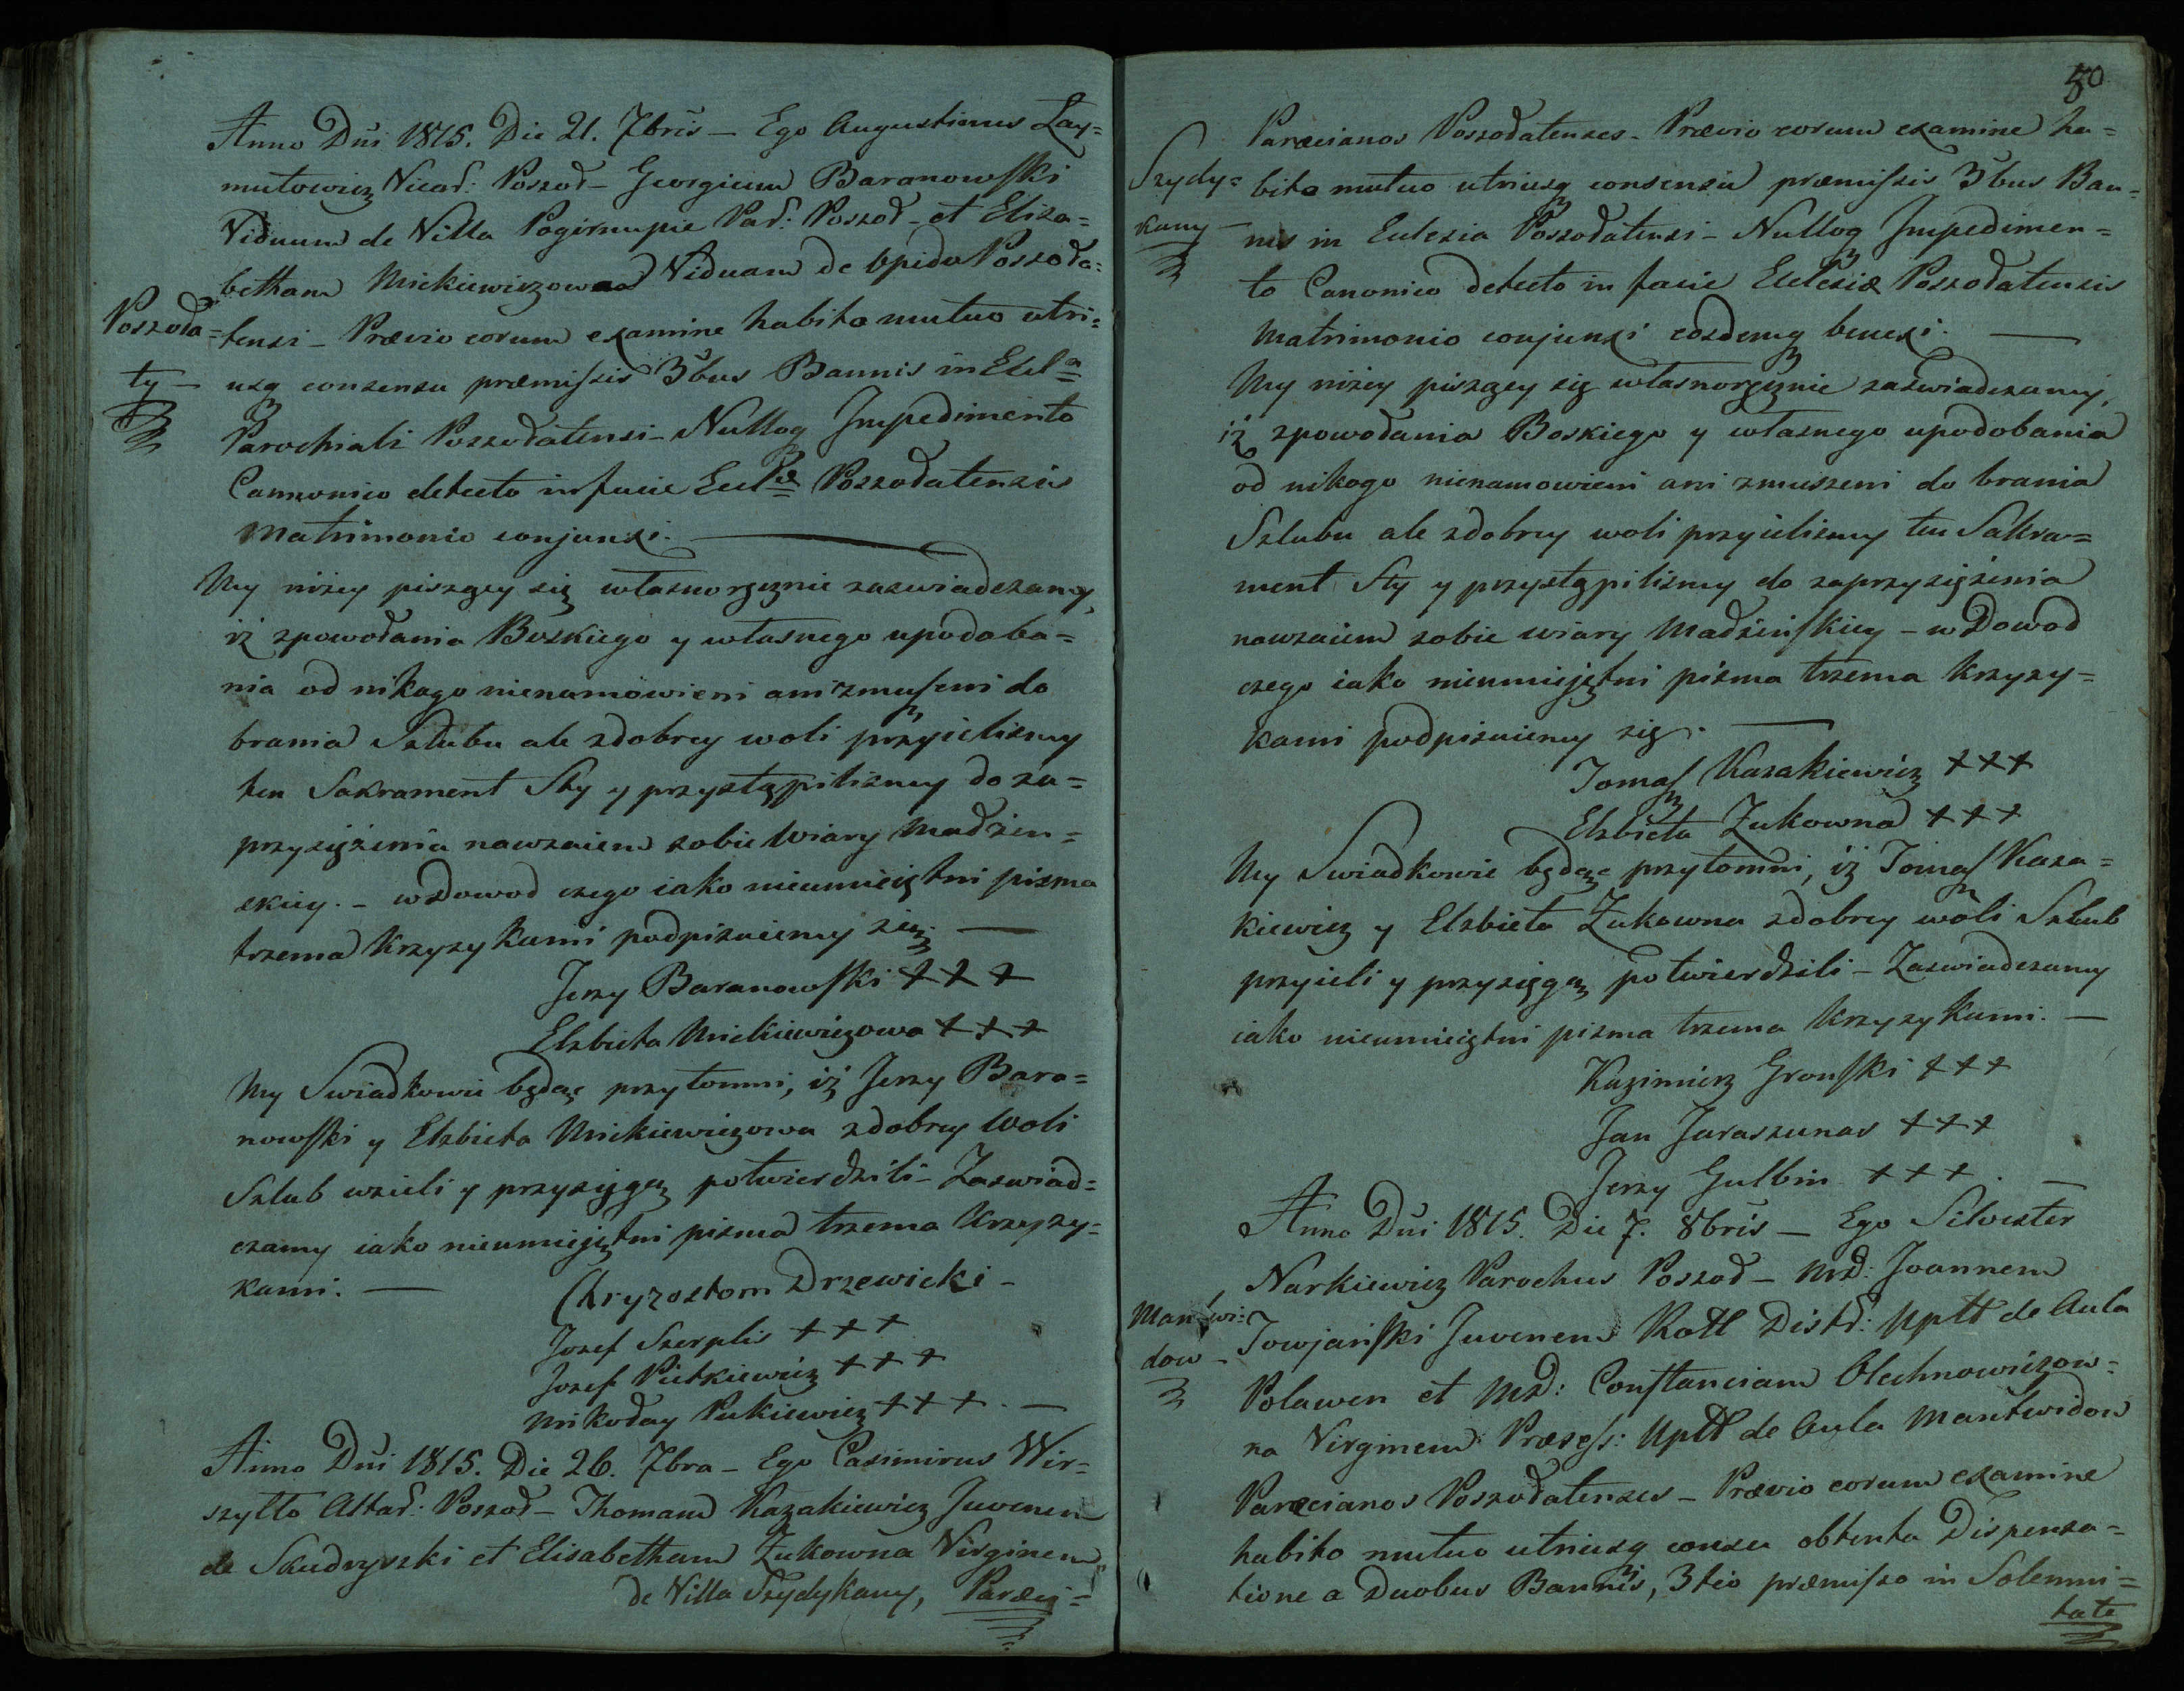 Anno Dni 1815. Die 21. 7bris — Ego Augustinus Lay=
mutowicz Vicar: Poszod — Georgium Baranowski
Viduum de Villa Pogirnupie Par: Poszod — et Elisa=
betham Mickiewiczowna Viduam de Opido Poszoda=
Poszoda=
tensi — Prævio eorum examine habito mutuo utri=
ty —
usq consensu præmissis 3bus Bannis in Eccl
Parochiali Poszodatensi — Nulloq Impedimento
Cannonico detecto in facie Eccl Poszodatensis
Matrimonio conjunxi. —
My niżey piszący się własnoręcznie zaswiadczamy,
iż zpowodania Boskiego y własnego upodoba=
nia od nikogo nienamówieni ani zmuszeni do
brania Szlubu ale zdobrey woli przyieliśmy
ten Sakrament Sty y przystąpiliśmy do za=
przysiężenia nawzaiem sobie Wiary Madżen=
skiey. — w Dowod czego iako nieumieiętni pisma
trzema krzyzykami podpisuiemy się. —
Jerzy Baranowski +++
Elzbieta Mickiewiczowa +++
My Swiadkowie będąc przytomni, iż Jerzy Bara=
nowski y Elzbieta Mickiewiczowa zdobrey Woli
Szlub wzieli y przysięgą potwierdzili — Zaswiad=
czamy iako nieumiejętni pisma trzema Krzyzy=
kami. —
Chryzostom Drzewicki —
Jozef Szerplis +++
Jozef Pietkiewicz +++
Mikołay Pukiewicz +++. —
Anno Dni 1815. Die 26. 7bra — Ego Casimirus Wir=
szyłło Altar: Poszod — Thomam Kazakiewicz Juvenem
de Skudryszki et Elisabetham Zukowna Virginem
de Villa Szydykany, Paræci=
50
Paræcianos Poszodatenses — Prævio eorum examine ha=
Szydy=
bito mutuo utriusq consensu præmissis 3bus Ban=
kany —
nis in Eclesia Poszodatensi — Nulloq Impedimen=
to Canonico detecto in facie Eclesiæ Poszodatensis
Matrimonio conjunxi eosdemq benexi. —
My niżey piszący się własnoręcznie zaświadczamy,
iż zpowodania Boskiego y własnego upodobania
od nikogo nienamowieni ani zmuszeni do brania
Szlubu ale zdobrey woli przyieliśmy ten Sakra=
ment Sty y przystąpiliśmy do zaprzysiężenia
nawzaiem sobie wiary Madżeńskiey — w Dowod
czego iako nieumiejętni pisma trzema krzyzy=
kami podpisuiemy się. —
Tomasz Kazakiewicz +++
Elzbieta Zukowna +++
My Swiadkowie będąc przytomni, iż Tomasz Kaza=
kiewicz y Elzbieta Zukowna zdobrey woli Szlub
przyieli y przysięgą potwierdzili — Zaswiadczamy
iako nieumieiętni pisma trzema krzyzykami. —
Kazimierz Gronski +++
Jan Juraszunas +++
Jerzy Gulbin +++. —
Anno Dni 1815. Die 7. 8bris — Ego Silvester
Narkiewicz Parochus Poszod — Md: Joannem
Mantwi=
Jowjański Juvenem Rott Distr: Uptt de Aula
dow —
Polawen et Md: Constanciam Olechnowiczow=
na Virginem Præsess: Uptt de Aula Mantwidow
Paræcianos Poszodatenses — Prævio eorum examine
habito mutuo utriusq consu obtenta Dispensa=
tione a Duobus Bannis, 3tio præmisso in Solemni=
tate